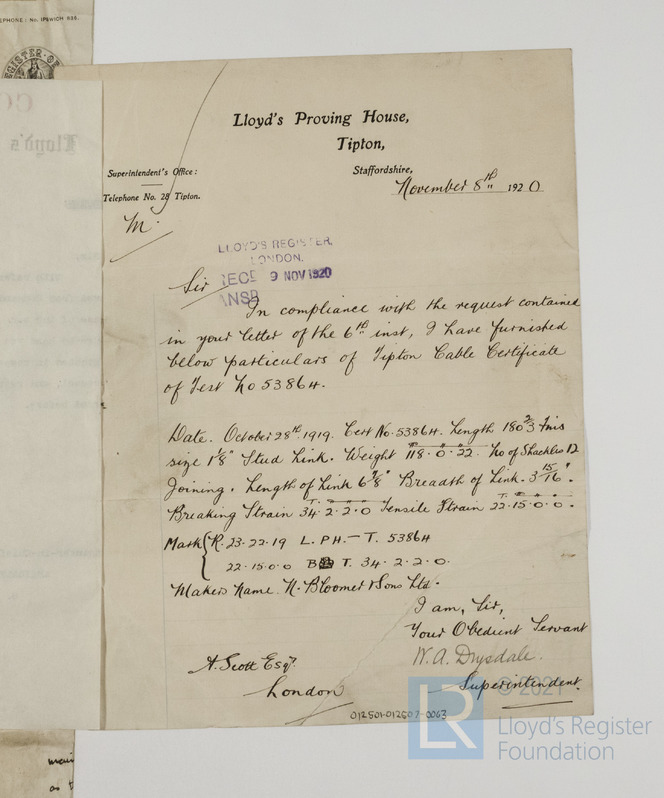 EPHONE: No. IPSWICH 835.
Lloyd's Proving House,
Tipton,
Staffordshire,
Superintendent's Office:
Telephone No. 28 Tipton.
November 8th 1920
M.
LLOYD'S REGISTER,
LONDON.
RECD 9 NOV 1920
ANSD
Sir
In compliance with the request contained
in your letter of the 6th inst, I have furnished
below particulars of Tipton Cable Certificate
of Test No 53864.
Date. October 28th. 1919. Cert No. 53864. Length 180 2/3 fms
size 1 1/8" Stud Link. Weight 118. 0. 22. No of Shackles 12
Joining. Length of Link 6 7/8" Breadth of Link. 3 15/16".
Breaking Strain 34. 2. 2. 0 Tensile Strain 22. 15. 0. 0.
Mark { R. 23-22-19 L. P.H. - T. 53864
22. 15. 0. 0 B T. 34. 2. 2. 0.
Makers Name. N. Bloomer & Sons Ltd.
I am, Sir,
Your Obedient Servant
W. A. Drysdale.
Superintendent.
A. Scott Esqr.
London
012501-012507-0063
© 2021
LR
Lloyd's Register
Foundation